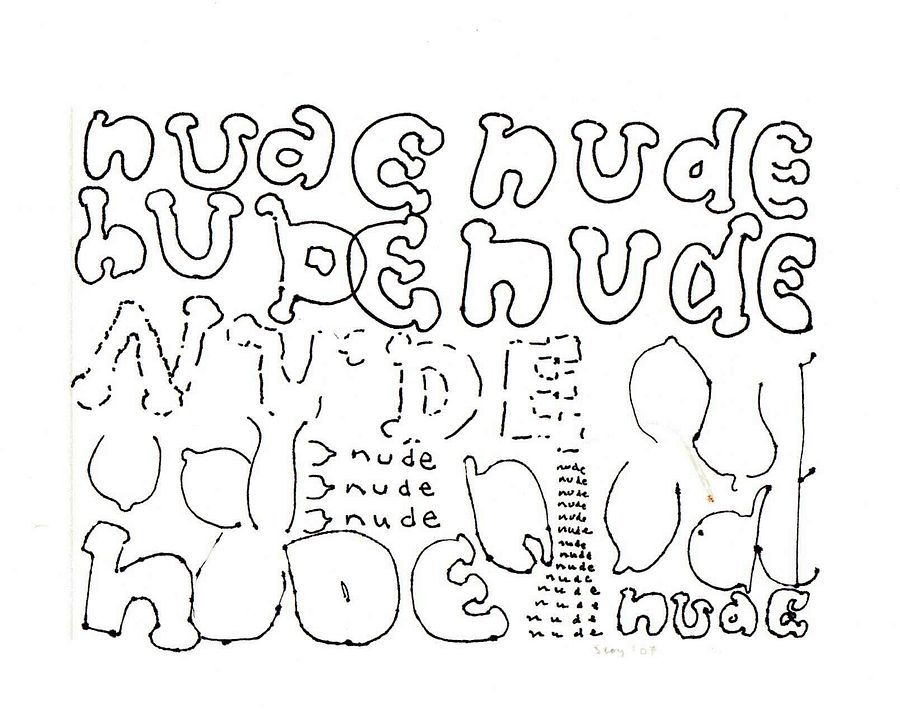 nude nude
nude nude
NUDE
nude
nude
nude
nude
nude
nude
nude
nude
nude
nude
nude
nude
nude
nude
nude
nude
nude
nude nude